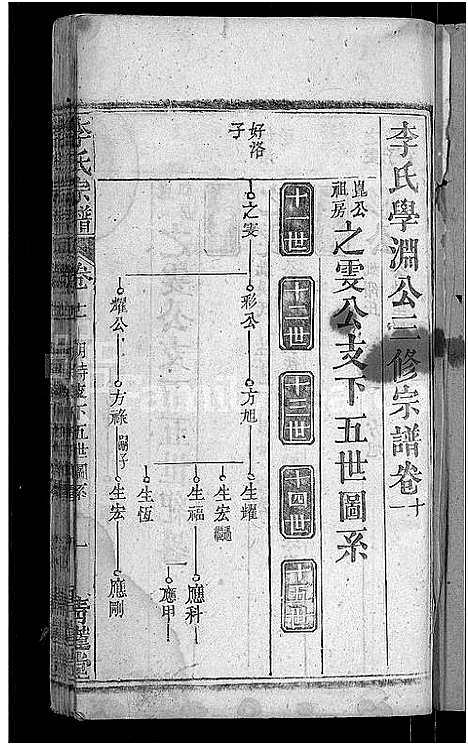 李氏學淵公三修宗譜卷十一
崑公祖房
之雯公支下五世圖系
十一世
十二世
十三世
十四世
十五世
好洛子
之雯
彤公
方旭
生耀
生宏
生福
應科
應甲
生恆
耀公
方祿
嗣子
生宏
應剛
李氏宗譜
卷十一
下五世圖系
一